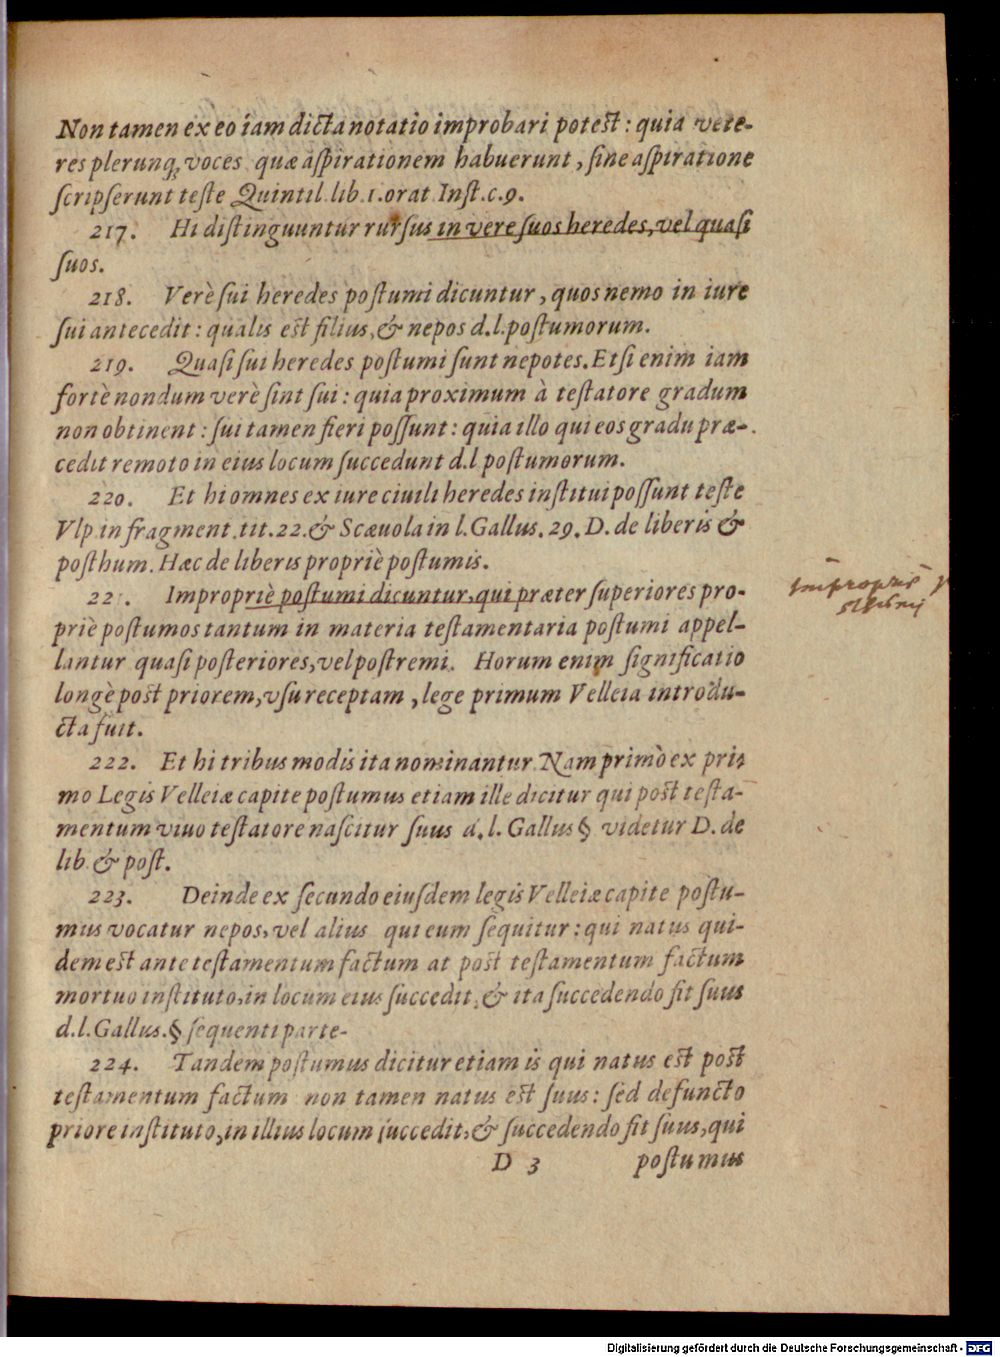 Non tamen ex eo iam dicta notatio improbari potest: quia vete-
res plerunq; voces quæ aſpirationem habuerunt, ſine aſpiratione
ſcripſerunt teſte Quintil. lib. 1. orat. Inſt. c. 9.
217. Hi diſtinguuntur rurſus in vere ſuos heredes, vel quaſi
ſuos.
218. Verè ſui heredes poſtumi dicuntur, quos nemo in iure
ſui antecedit: qualis eſt filius, & nepos d. l. poſtumorum.
219. Quaſi ſui heredes poſtumi ſunt nepotes. Etſi enim iam
fortè nondum verè ſint ſui: quia proximum à teſtatore gradum
non obtinent: ſui tamen fieri poſſunt: quia illo qui eos gradu præ-
cedit remoto in eius locum ſuccedunt d. l. poſtumorum.
220. Et hi omnes ex iure ciuili heredes inſtitui poſſunt teſte
Vlp. in fragment. tit. 22. & Scæuola in l. Gallus. 29. D. de liberis &
poſthum. Hæc de liberis propriè poſtumis.
22 . Impropriè poſtumi dicuntur, qui præter ſuperiores pro-
priè poſtumos tantum in materia teſtamentaria poſtumi appel-
lantur quaſi poſteriores, vel poſtremi. Horum enim ſignificatio
longè poſt priorem, vſu receptam, lege primum Velleia introdu-
cta fuit.
impropriè
222. Et hi tribus modis ita nominantur. Nam primò ex pri-
mo Legis Velleiæ capite poſtumus etiam ille dicitur qui poſt teſta-
mentum viuo teſtatore naſcitur ſuus d. l. Gallus § videtur D. de
lib. & poſt.
223. Deinde ex ſecundo eiuſdem legis Velleiæ capite poſtu-
mus vocatur nepos, vel alius qui eum ſequitur: qui natus qui-
dem eſt ante teſtamentum factum at poſt teſtamentum factum
mortuo inſtituto, in locum eius ſuccedit, & ita ſuccedendo fit ſuus
d. l. Gallus. § ſequenti parte-
224. Tandem poſtumus dicitur etiam is qui natus eſt poſt
teſtamentum factum non tamen natus eſt ſuus: ſed defuncto
priore inſtituto, in illius locum ſuccedit, & ſuccedendo fit ſuus, qui
D 3 poſtumus
Digitalisierung gefördert durch die Deutsche Forschungsgemeinschaft - DFG